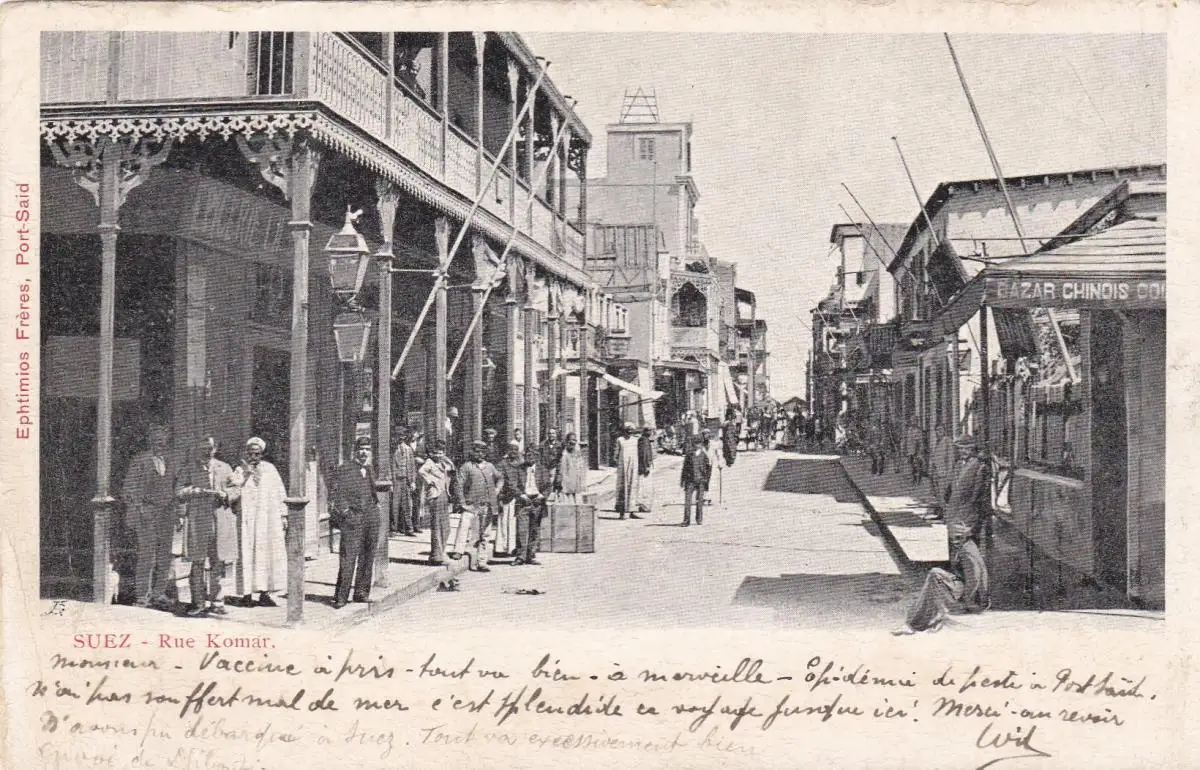 Ephtimios Frères, Port-Said
BAZAR CHINOIS CO
SUEZ - Rue Komar.
Monsieur - Vaccine a pris - tout va bien - à merveille - Epidémie de peste à Port Saïd.
N'ai pas souffert mal de mer c'est splendide ce voyage jusque ici. Merci - au revoir
N'avons pu débarqué à Suez. Tout va excessivement bien
de Djibouti.